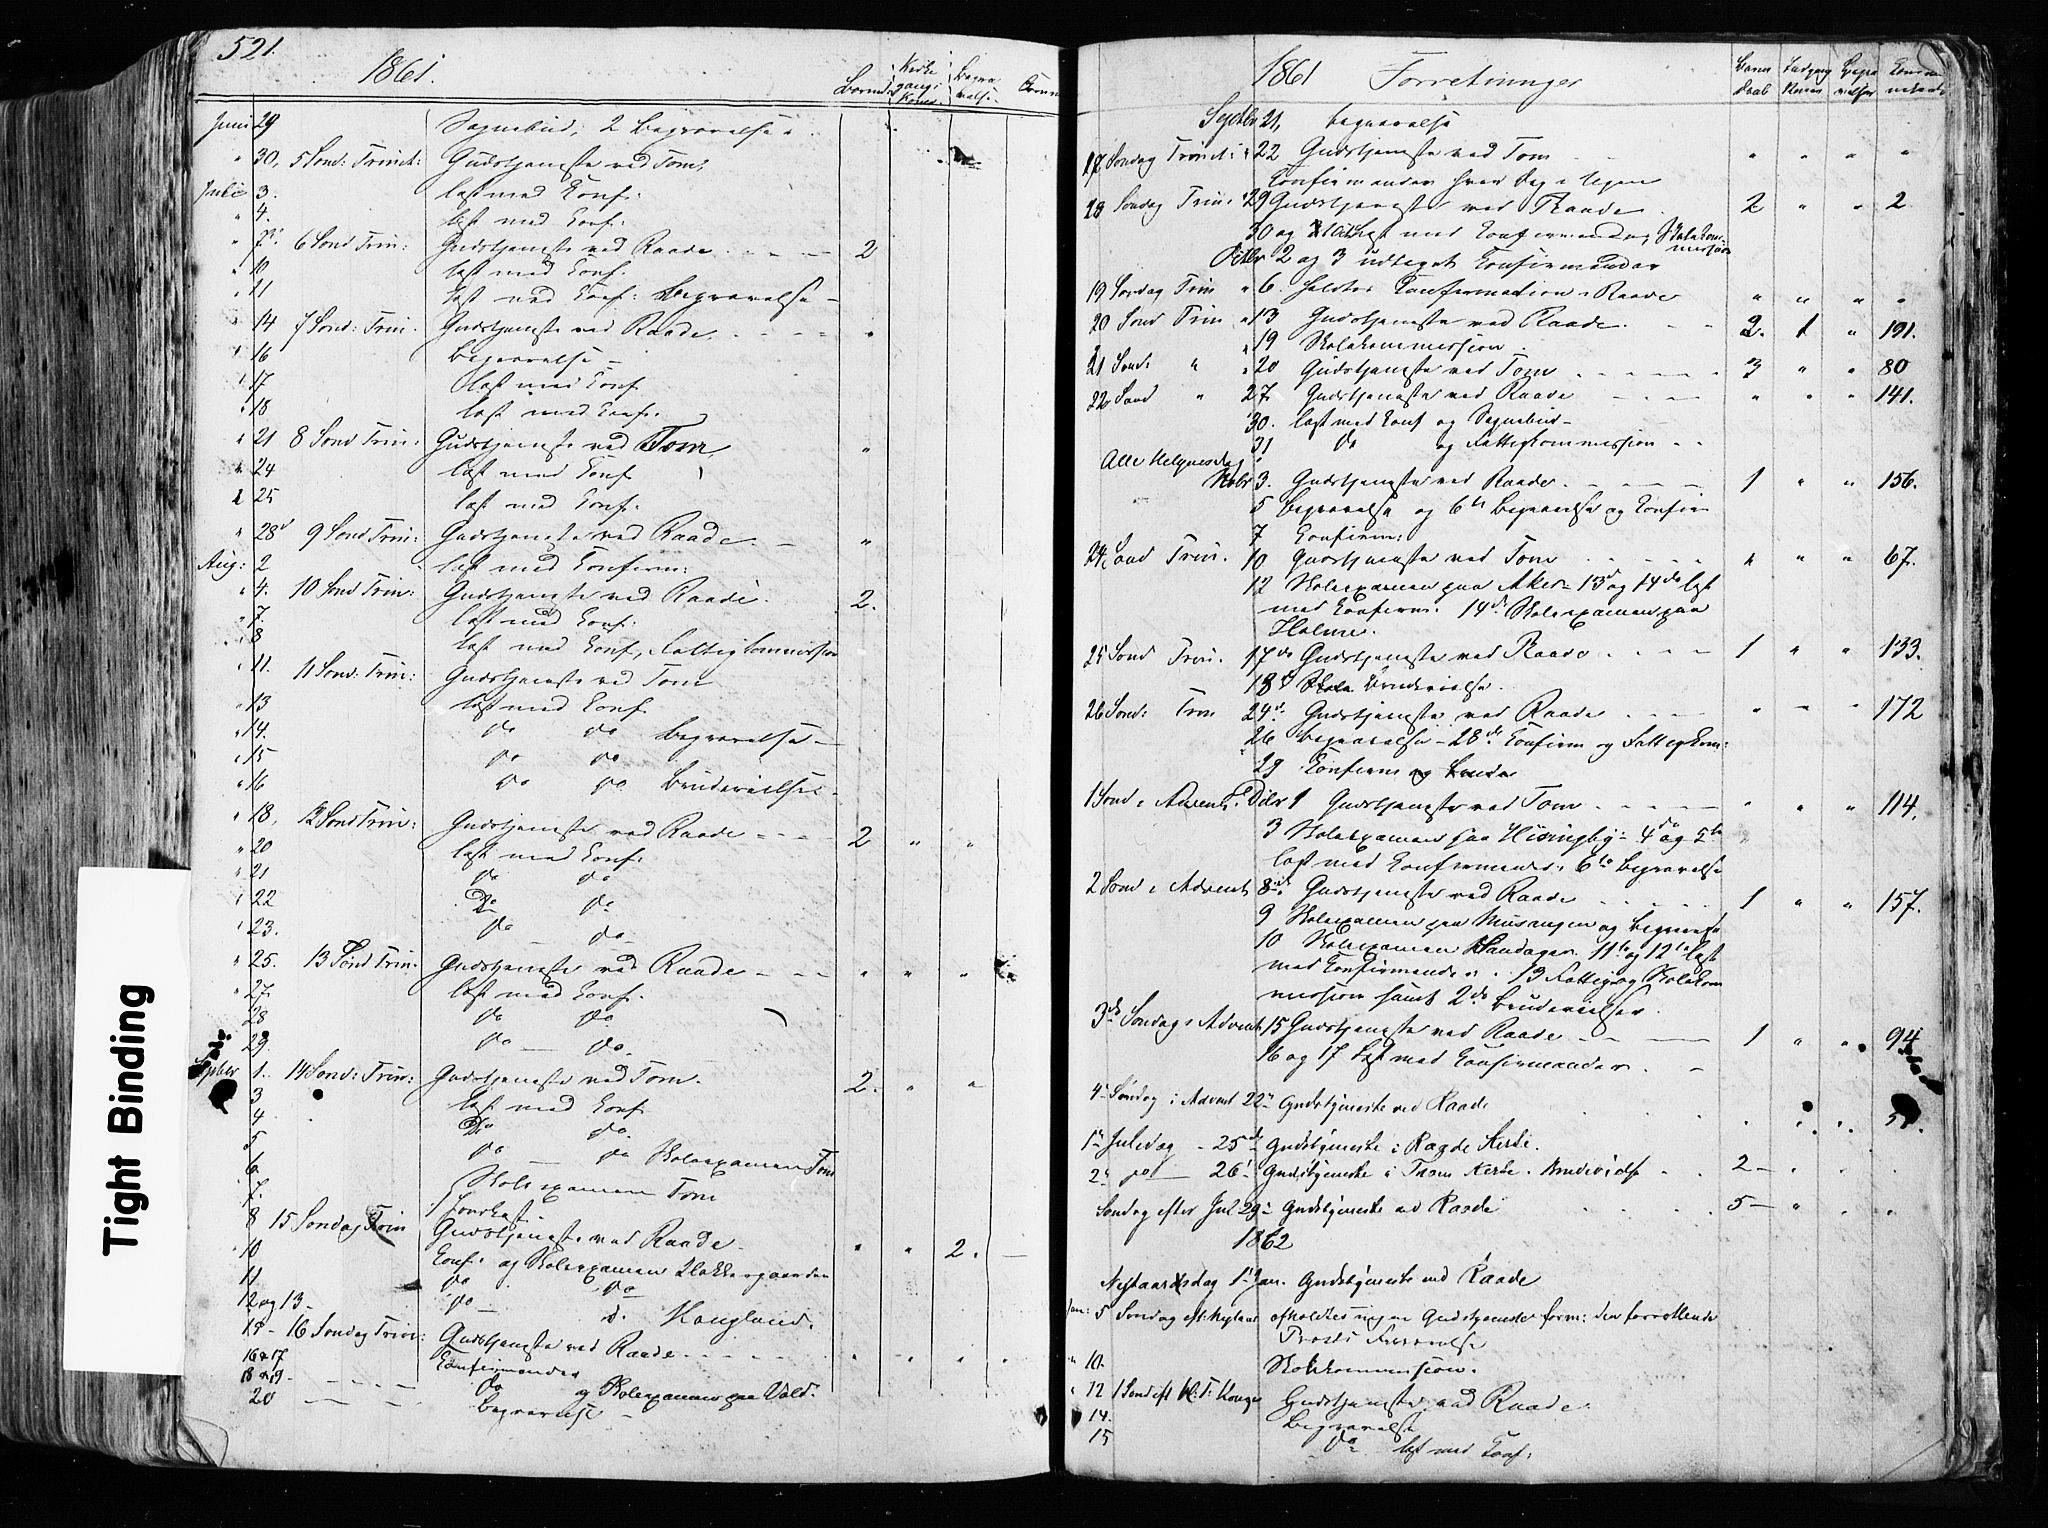 521.
1861.
Barned. Kirkegangskoner Begravelse Comm
Juni 29 Sognebud, 2 Begravelser
" 30, 5 Sond: Trinit: Gudstjeneste ved Tom,
Julii 3. læst med Conf:
" 4. læst med Conf.
" 7de 6 Sond Trin: Gudstjeneste ved Raade 2
" 10 læst med Conf.
" 11 læst med Conf: Begravelse –
" 14 7 Sond: Trin. Gudstjeneste ved Raade. "
" 16 Begravelse –
" 17 læst med Conf
" 18 læst med Conf.
" 21 8 Sond Trin: Gudstjeneste ved Tom "
" 24 læst med Conf
" 25 læst med Conf.
" 28d 9 Sond Trin: Gudstjeneste ved Raade. – "
Aug: 2 læst med Confirm:
" 4. 10 Sond Trin: Gudstjeneste ved Raade. 2.
" 7. læst med Conf.
" 8 læst med Conf, Fattigkommission
" 11. 11 Sond: Trin: Gudstjeneste ved Tom
" 13 læst med Conf.
" 14. do do Begravelse –
" 15 do do
" 16 do do Brudevielse –
" 18, 12 Sond Trin: Gudstjeneste ved Raade 2 " "
" 20 læst med Conf.
" 21 do do
" 22 Do do
" 23. do – do –
" 25. 13 Sond Trin. Gudstjeneste ved Raade " " "
" 27. læst med Conf.
28 do do
29. do — do.
Septbr 1. 14 Sond: Trin: Gudstjeneste ved Tom. 2. " "
3 læst med Conf
4 Do do.
5 do — do Skoleexamen Tom
6. Skoleexamen Tom
7.
8 15 Sondag Trin Gudstjeneste ved Raade " " 2. –
10 Conf. og Skoleexamen Klokkergaarden
11 do do
12 og 13 – do — d. Haugland.
15 – 16 Sondag Trin: Gudstjeneste ved Raade " " " "
16 & 17 Confirmander
18 & 19 – do og Skoleexamen paa Vold.
20 Begravelse –
1861 Forretninger
Barnedaab Indgang Koner Begravelser Communicanter
Septbr 21, Begravelse
17 Sondag Trinit: " 22 Gudstjeneste ved Tom " " " "
Confirmander hver Dag i Ugen
18 Sondag Trin: 29 Gudstjeneste ved Raade 2 " " 2
30 og 1 Octb læst med Confirmander, Skolekommission
Octbr 2 og 3 udtaget Confirmander
19 Sondag Trin " 6. holdtes Confirmation i Raade " " " "
20 Sond Trin " 13 Gudstjeneste ved Raade. 2. 1 " 191.
" 19 Skolekommission
21 Sond: " " 20 Gudstjeneste ved Tom 3 " " 80
22 Sond " 27 Gudstjeneste ved Raade " " " 141.
30. læst med Conf og Sognebud –
31 do og Fattigkommission
Alle Helgensdag
Novbr 3. Gudstjeneste ved Raade. 1 " " 156.
5 Begravelse og 6te Begravelse og Confirm
7 Confirm:
24 Sond Trin. 10 Gudstjeneste ved Tom " " " 67.
12 Skoleexamen paa Aker – 13d og 14de læst
med Confirm. 14d. Skoleexamen paa
Holme.
25 Sond Trin. 17de Gudstjeneste ved Raade 1 " " 133.
18d Skole Brudevielse.
26 Sond: Trin 24d. Gudstjeneste ved Raade " – " 172
26 Begravelse – 28de Confirm og Fattigkom:
29 Confirm og Brude
1 Sond i Advent Dcbr 1 Gudstjeneste ved Tom " " " 114.
3 Skoleexamen paa Huseby – 4de og 5te
læst med Confirmander. 6te Begravelse
2 Sond i Advent 8de Gudstjeneste ved Raade 1 " " 157.
9 Skoleexamen paa Musangen og Begravelse
10 Skoleexamen Haudager. 11te og 12te læst
med Confirmander. 13 Fattig og Skolekom
mission samt 2de Brudevielser.
3de Sondag i Advent 15 Gudstjeneste ved Raade 1 " " 94
16 og 17 læst med Confirmander. –
4de Søndag i Advent 22de Gudstjeneste ved Raade
1te Juledag – 25de Gudstjeneste i Raade Kirke.
2de do — 26' Gudstjeneste i Thom Kirke. Brudevielse 2 –
Søndag efter Jul 29de Gudstjeneste ved Raade 5 – " "
1862
Nytaarsdag 1te Jan. Gudstjeneste ved Raade
Jan: 5 Søndag eft: Nytaar afholdtes ingen Gudstjeneste form: den forrettende
Præsts Fraværelse
" 10. Skolekommission.
" 12 1 Sond eft H. 3 Konger Gudstjeneste ved Raade.
14. Begravelse
15 do læst med Conf:
Tight Binding